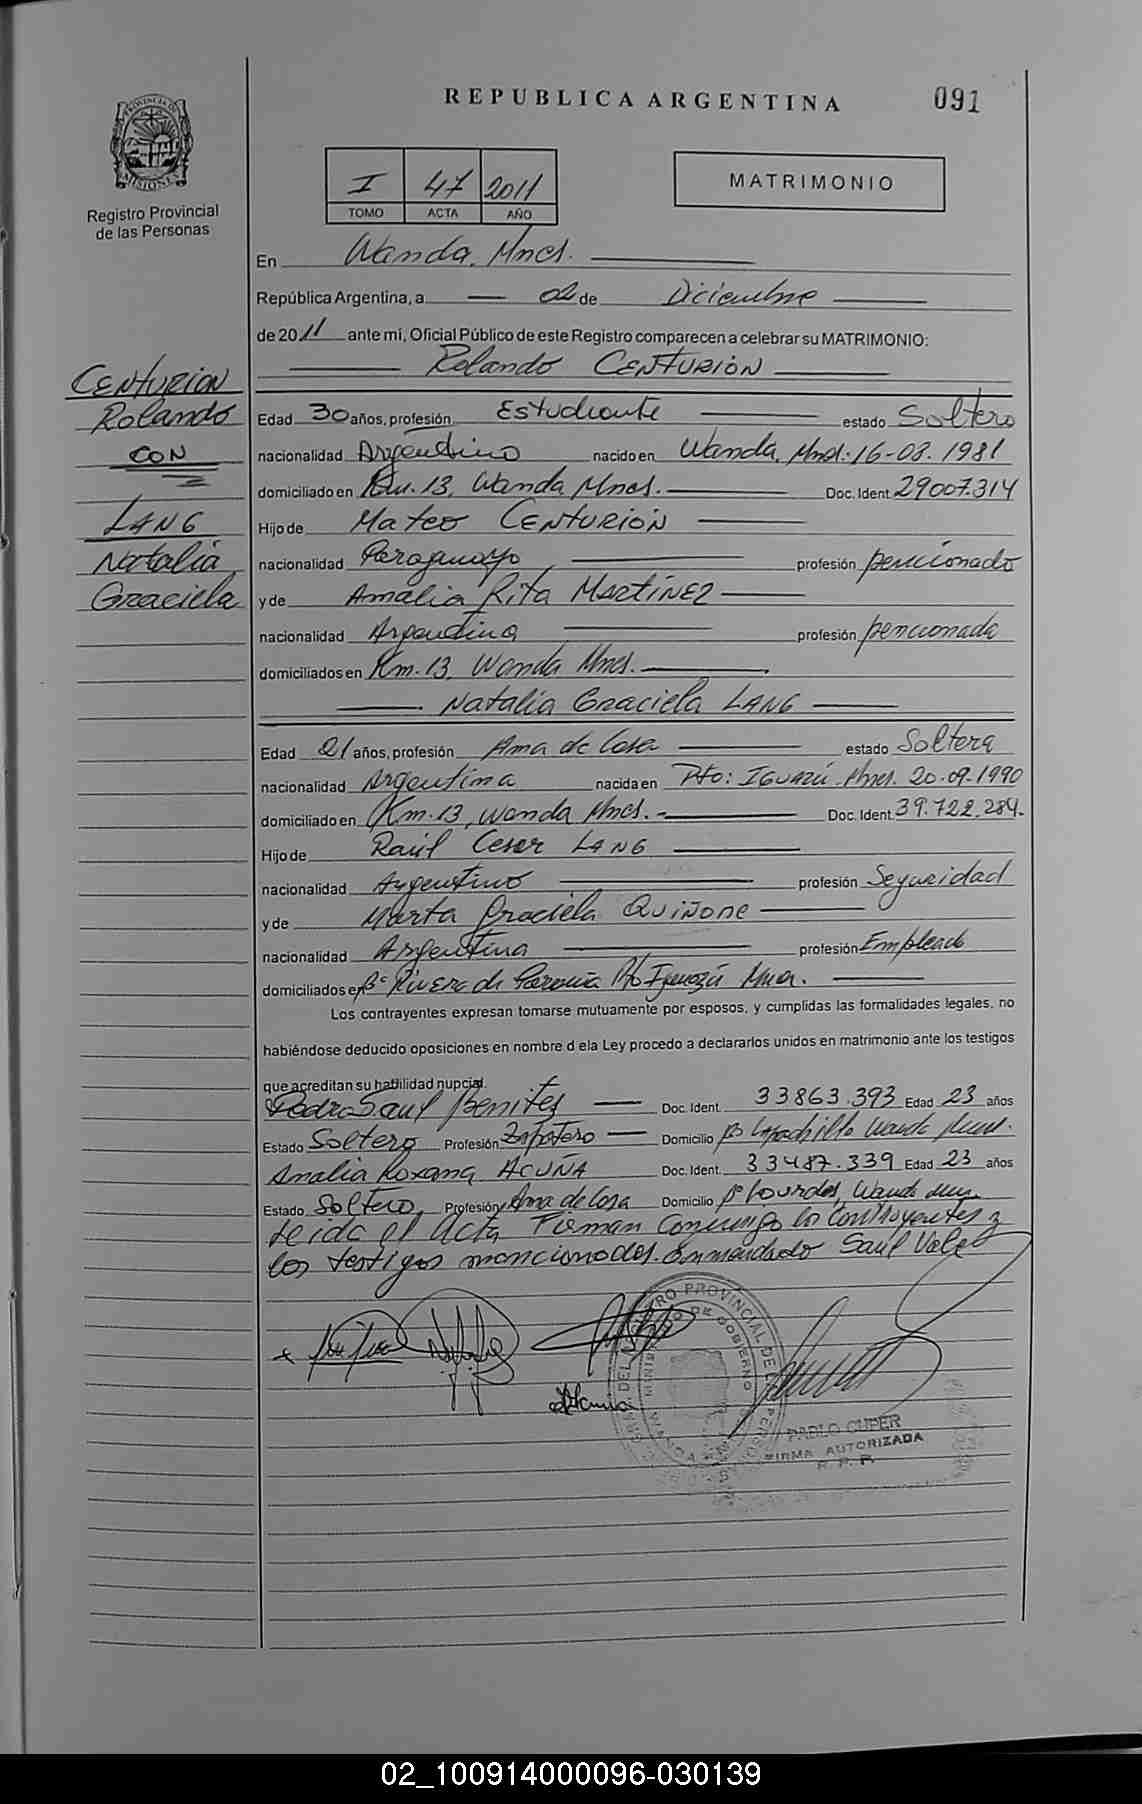 REPUBLICA ARGENTINA
091
PROVINCIA DE
MISIONES
Registro Provincial
de las Personas
I 47 2011
TOMO ACTA AÑO
MATRIMONIO
En Wanda, Mnes.
República Argentina, a 02 de Diciembre
de 2011 ante mi, Oficial Público de este Registro comparecen a celebrar su MATRIMONIO:
Rolando CENTURIÓN
CENTURION
Rolando
CON
LANG
Natalia
Graciela
Edad 30 años, profesión Estudiante estado Soltero
nacionalidad Argentino nacido en Wanda, Mnes. 16-08-1981
domiciliado en Km. 13, Wanda Mnes. Doc. Ident. 29007.314
Hijo de Mateo CENTURIÓN
nacionalidad Paraguayo profesión pencionado
y de Amalia Rita MARTÍNEZ
nacionalidad Argentina profesión pencionada
domiciliados en Km. 13, Wanda Mnes.
Natalia Graciela LANG
Edad 21 años, profesión Ama de Casa estado Soltera
nacionalidad Argentina nacida en Pto: IGUAZÚ Mnes. 20-09-1990
domiciliado en Km. 13, Wanda Mnes. Doc. Ident. 39.722.284.
Hijo de Raúl Cesar LANG
nacionalidad Argentino profesión Seguridad
y de Marta Graciela QUIÑONE
nacionalidad Argentina profesión Empleado
domiciliados en B° Rivera de Paraná Pto Iguazú Mnes.
Los contrayentes expresan tomarse mutuamente por esposos, y cumplidas las formalidades legales, no
habiéndose deducido oposiciones en nombre d ela Ley procedo a declararlos unidos en matrimonio ante los testigos
que acreditan su habilidad nupcial.
Pedro Saul Benitez Doc. Ident. 33863.393 Edad 23 años
Estado Soltero Profesión Zapatero Domicilio B° Wanda Mnes.
Amalia Roxana ACUÑA Doc. Ident. 33487.339 Edad 23 años
Estado Soltero, Profesión Ama de Casa Domicilio B° Lourdes, Wanda Mnes.
Leida el Acta Firman Conmigo los Contrayentes y
los testigos mencionados. Enmendado Saul Vale
PABLO CUPER
FIRMA AUTORIZADA
R. P. P.
02_100914000096-030139